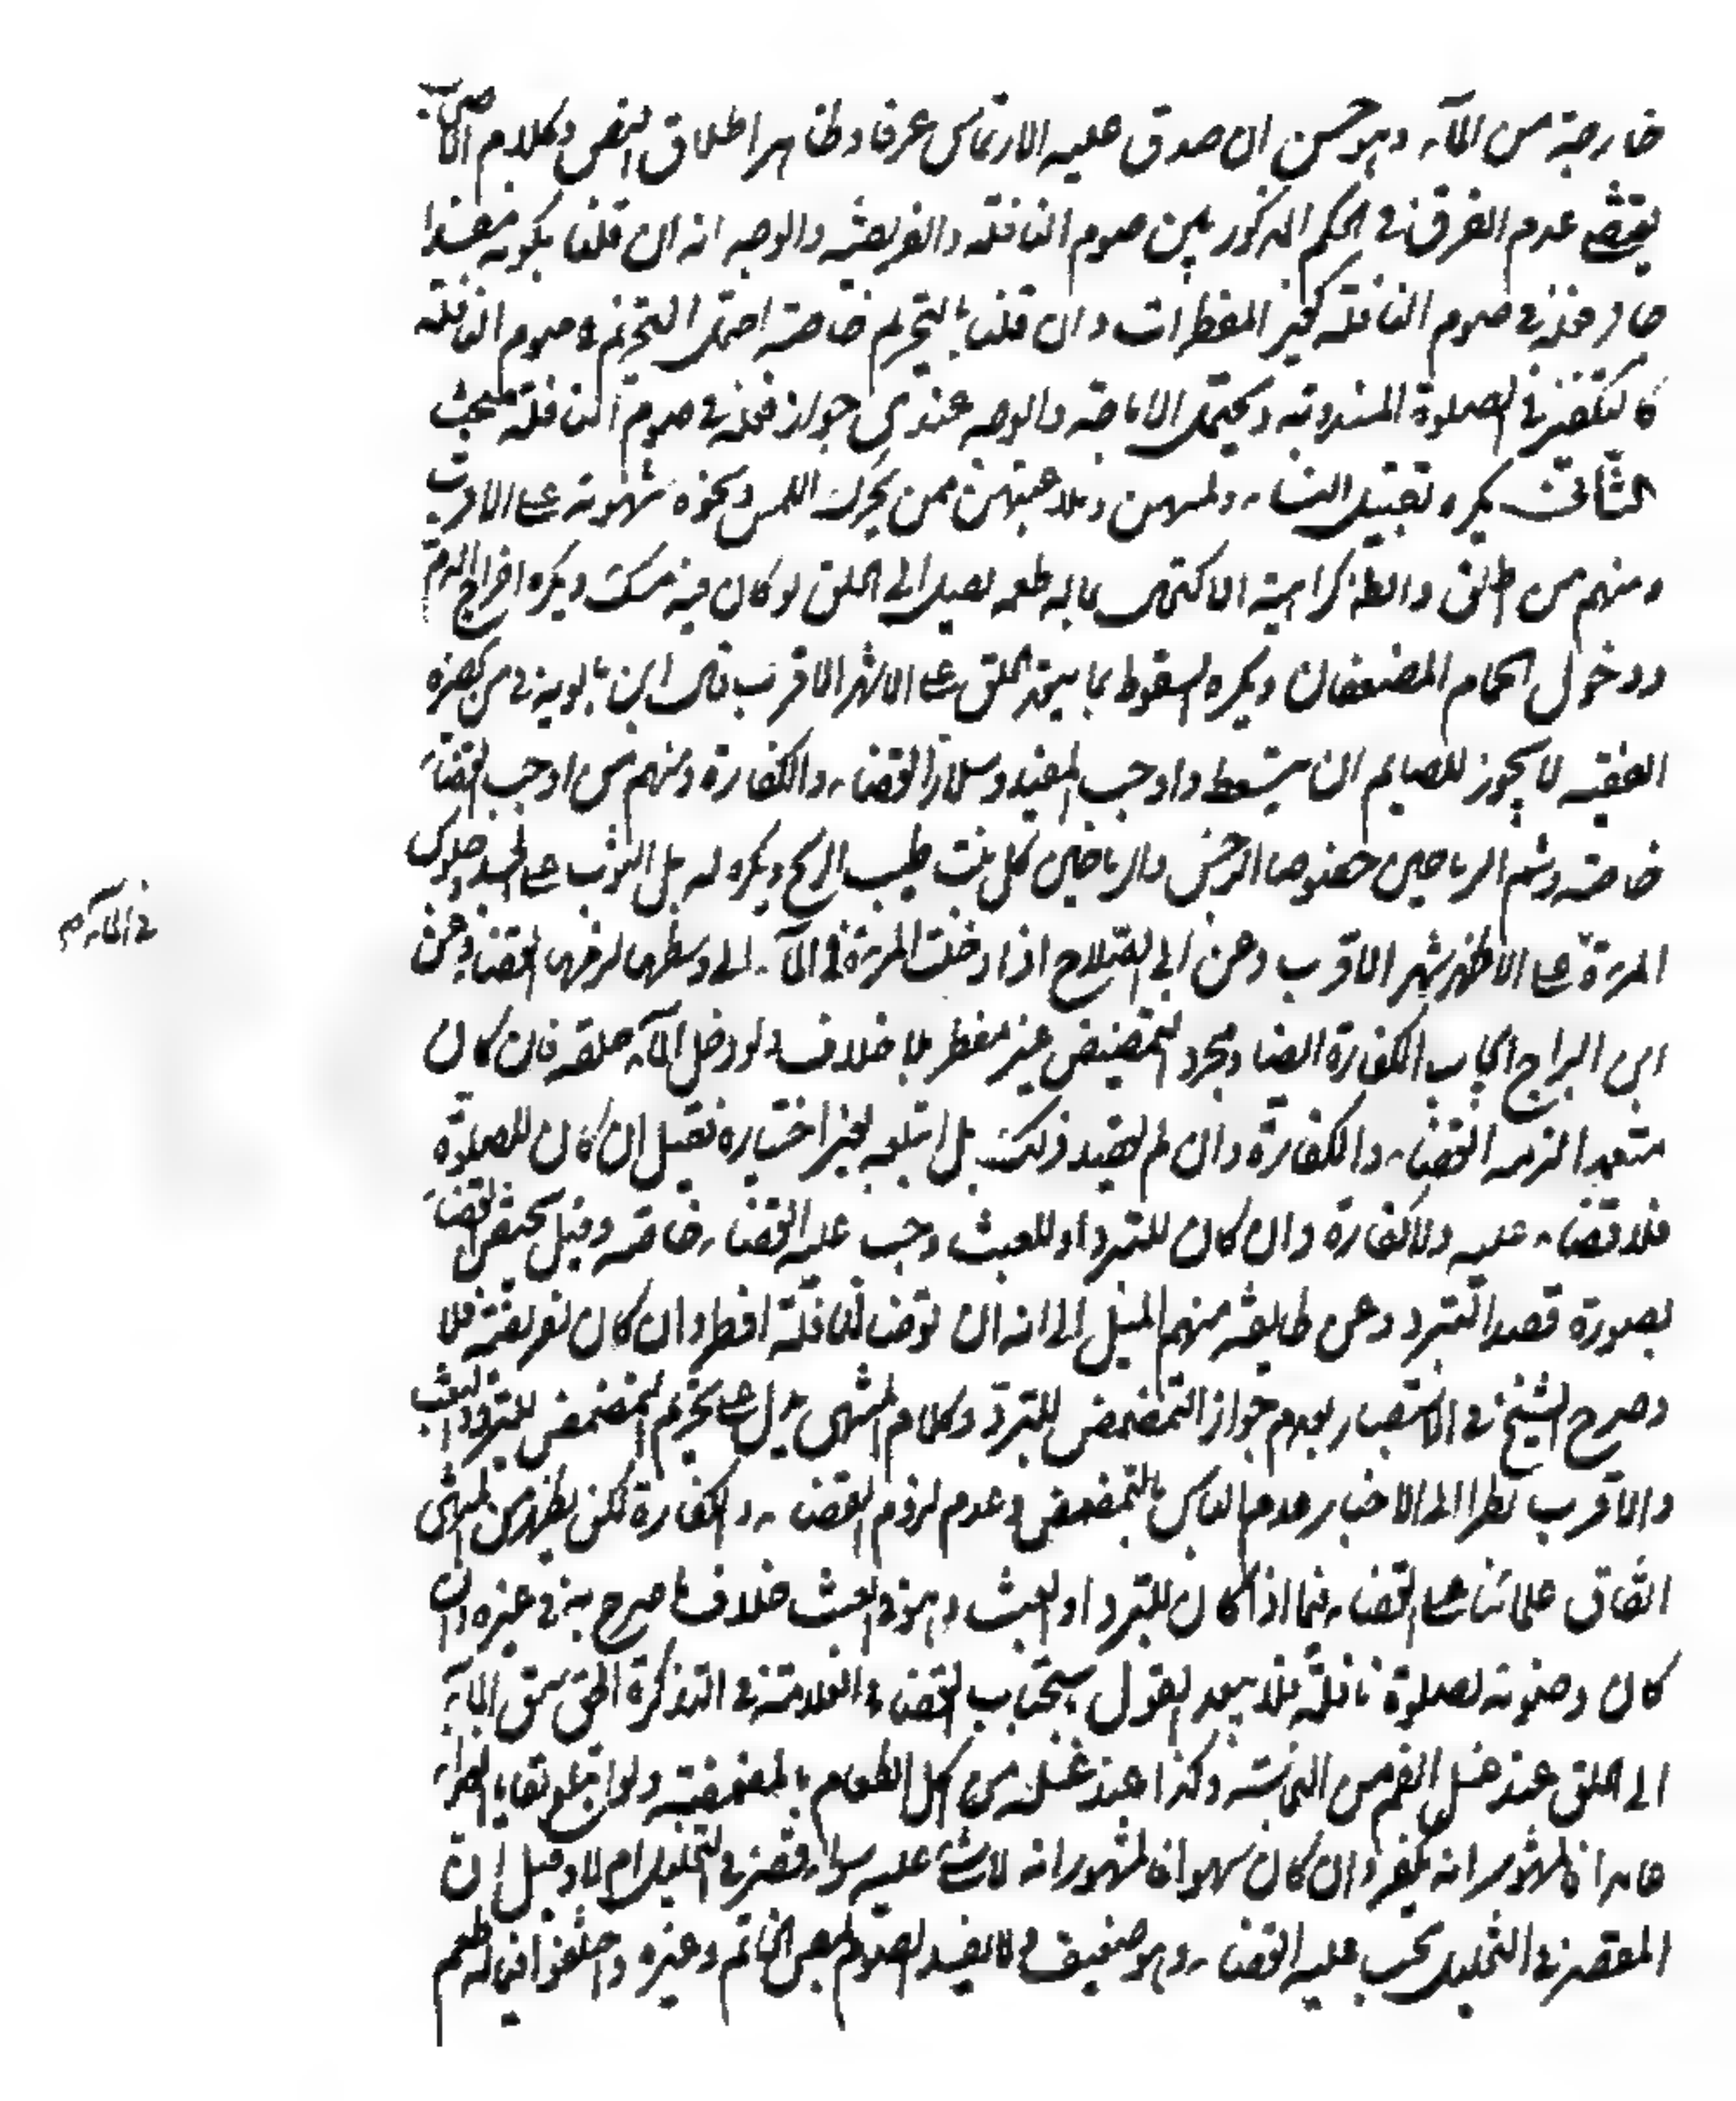 خارجة من الماء وهو حسن ان صدق عليه الارتماس عرفا وظاهر اطلاق النص وكلام الاصحاب
يقتضي عدم الفرق في الحكم المذكور بين صوم النافلة والفريضة والوجه انه ان قلنا بكونه مفسدا
جاز فعله في صوم النافلة كغير المفطرات وان قلنا بالتحريم خاصة احتمل التحريم في صوم النافلة
كالتكفير في الصلوة المندوبة ويحتمل الاباحة والوجه عندي جواز فعله في صوم النافلة مبحث
الثاني يكره تقبيل النساء ولمسهن وملاعبتهن ممن يحرك اللمس ونحوه شهوته على الاقرب
ومنهم من اطلق والظ كراهية الاكتحال بما له طعم يصل الى الحلق او كان فيه مسك ويكره اخراج الدم
ودخول الحمام المضعفان ويكره السعوط بما يتعد الحلق على الاشهر الاقرب قال ابن بابويه في من لا يحضره
الفقيه لا يجوز للصايم ان يتسعط واوجب المفيد وسلار القضاء والكفارة ومنهم من اوجب القضاء
خاصة وشم الرياحين خصوصا النرجس والرياحين كل نبت طيب الريح ويكره له بل الثوب على الجسد وجلوس
المرءة على الاظهر الاشهر الاقرب وعن ابي الصلاح اذا دخلت المرءة في الماء الى وسطها لزمها القضاء وعن
في الماء صح
ابن البراج ايجاب الكفارة ايضا ومجرد التمضمض غير مفطر بلا خلاف ولو دخل الماء حلقه فان كان
متعمدا لزمه القضاء والكفارة وان لم يقصد ذلك بل ابتلعه بغير اختياره فقيل ان كان للصلوة
فلا قضاء عليه ولا كفارة وان كان للتبرد او للعبث وجب عليه القضاء خاصة وقيل يختص القضاء
بصورة قصد التبرد وعن طايفة منهم الميل الى انه ان توضا لنافلة افطر وان كان لفريضة فلا
وصرح الشيخ في الاستبصار بعدم جواز التمضمض للتبرد وكلام المنتهى يدل على تحريم التمضمض للتبرد والعبث
والاقرب نظرا الى الاخبار عدم الباس بالتمضمض وعدم لزوم القضاء والكفارة لكن يظهر من المنتهى
اتفاق علمائنا على القضاء فيما اذا كان للتبرد او العبث وهو في العبث خلاف ما صرح به في غيره وان
كان وضوئه لصلوة نافلة فلا يبعد القول باستحباب القضاء والعلامة في التذكرة الحق سبق الماء
الى الحلق عند غسل الفم من النجاسة وكذا عند غسله من اكل الطعام بالمضمضة ولو ابتلع بقايا الغذاء
عامدا فالمشهور انه يكفر وان كان سهوا فالمشهور انه لا شئ عليه سواء قصر في التخليل ام لا وقيل ان
المقصر في التخليل يجب عليه القضاء وهو ضعيف ولا يفسد الصوم بمص الخاتم وغيره واختلفوا فيما له طعم